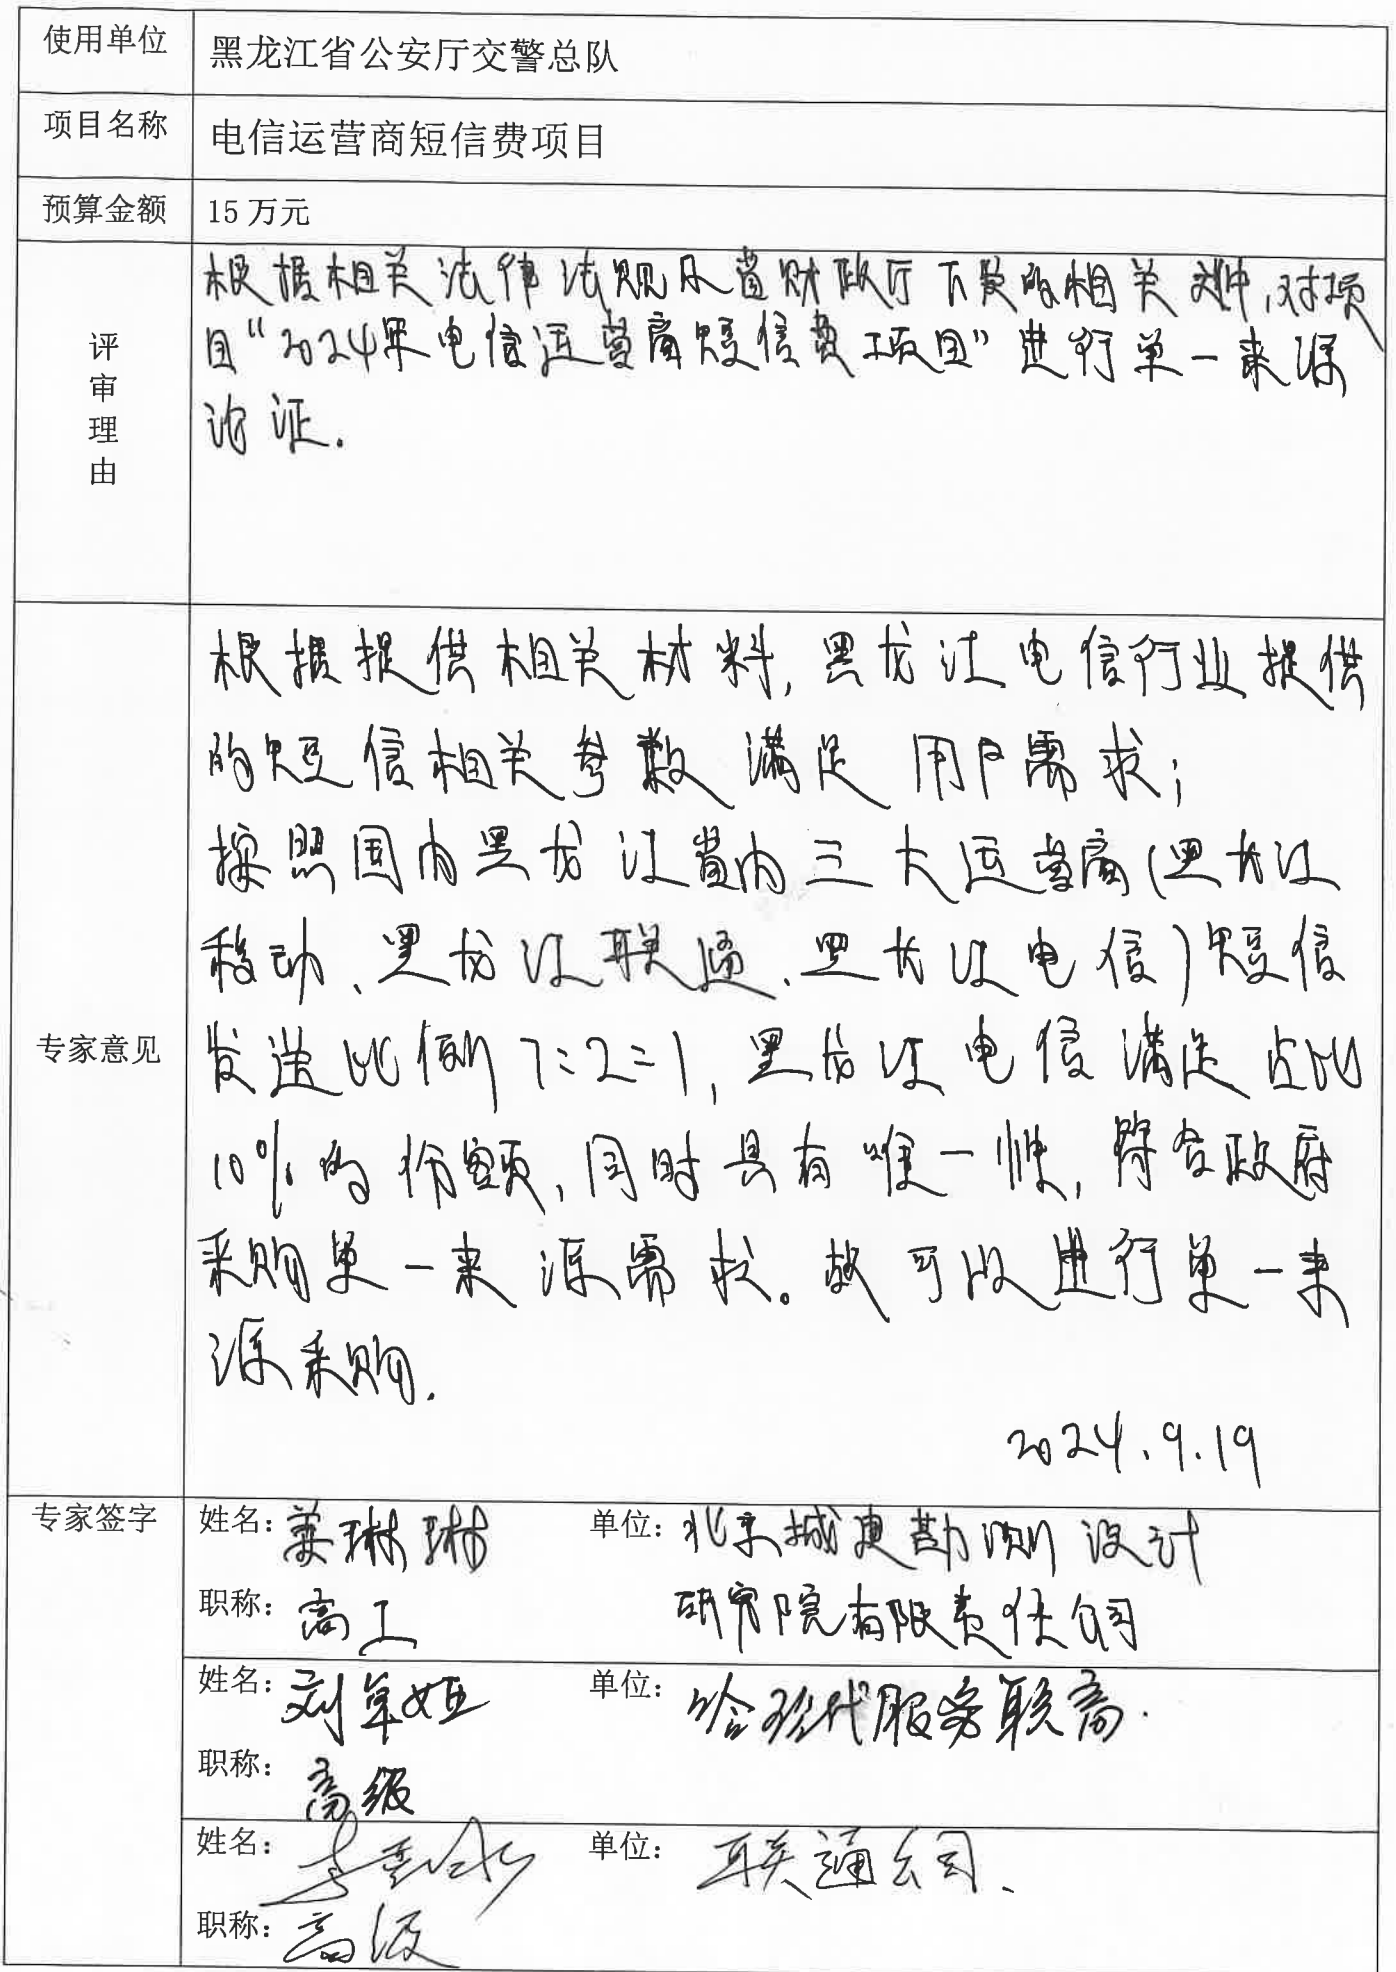 使用单位 黑龙江省公安厅交警总队
项目名称 电信运营商短信费项目
预算金额 15万元
评审理由
根据相关法律法规及省财政厅下发的相关文件,对项
目“2024年电信运营商短信费项目”进行单一来源
论证.
专家意见
根据提供相关材料,黑龙江电信行业提供
的短信相关参数满足用户需求;
按照国内黑龙江省内三大运营商(黑龙江
移动、黑龙江联通、黑龙江电信)短信
发送比例7:2:1,黑龙江电信满足占比
10%的份额,同时具有唯一性,符合政府
采购单一来源需求。故可以进行单一来
源采购.
2024.9.19
专家签字
姓名: 姜琳琳 单位: 北京城建勘测设计
职称: 高工 研究院有限责任公司
姓名: 刘 单位: 哈现代服务联
职称: 高级
姓名: 单位: 联通公司、
职称: 高级